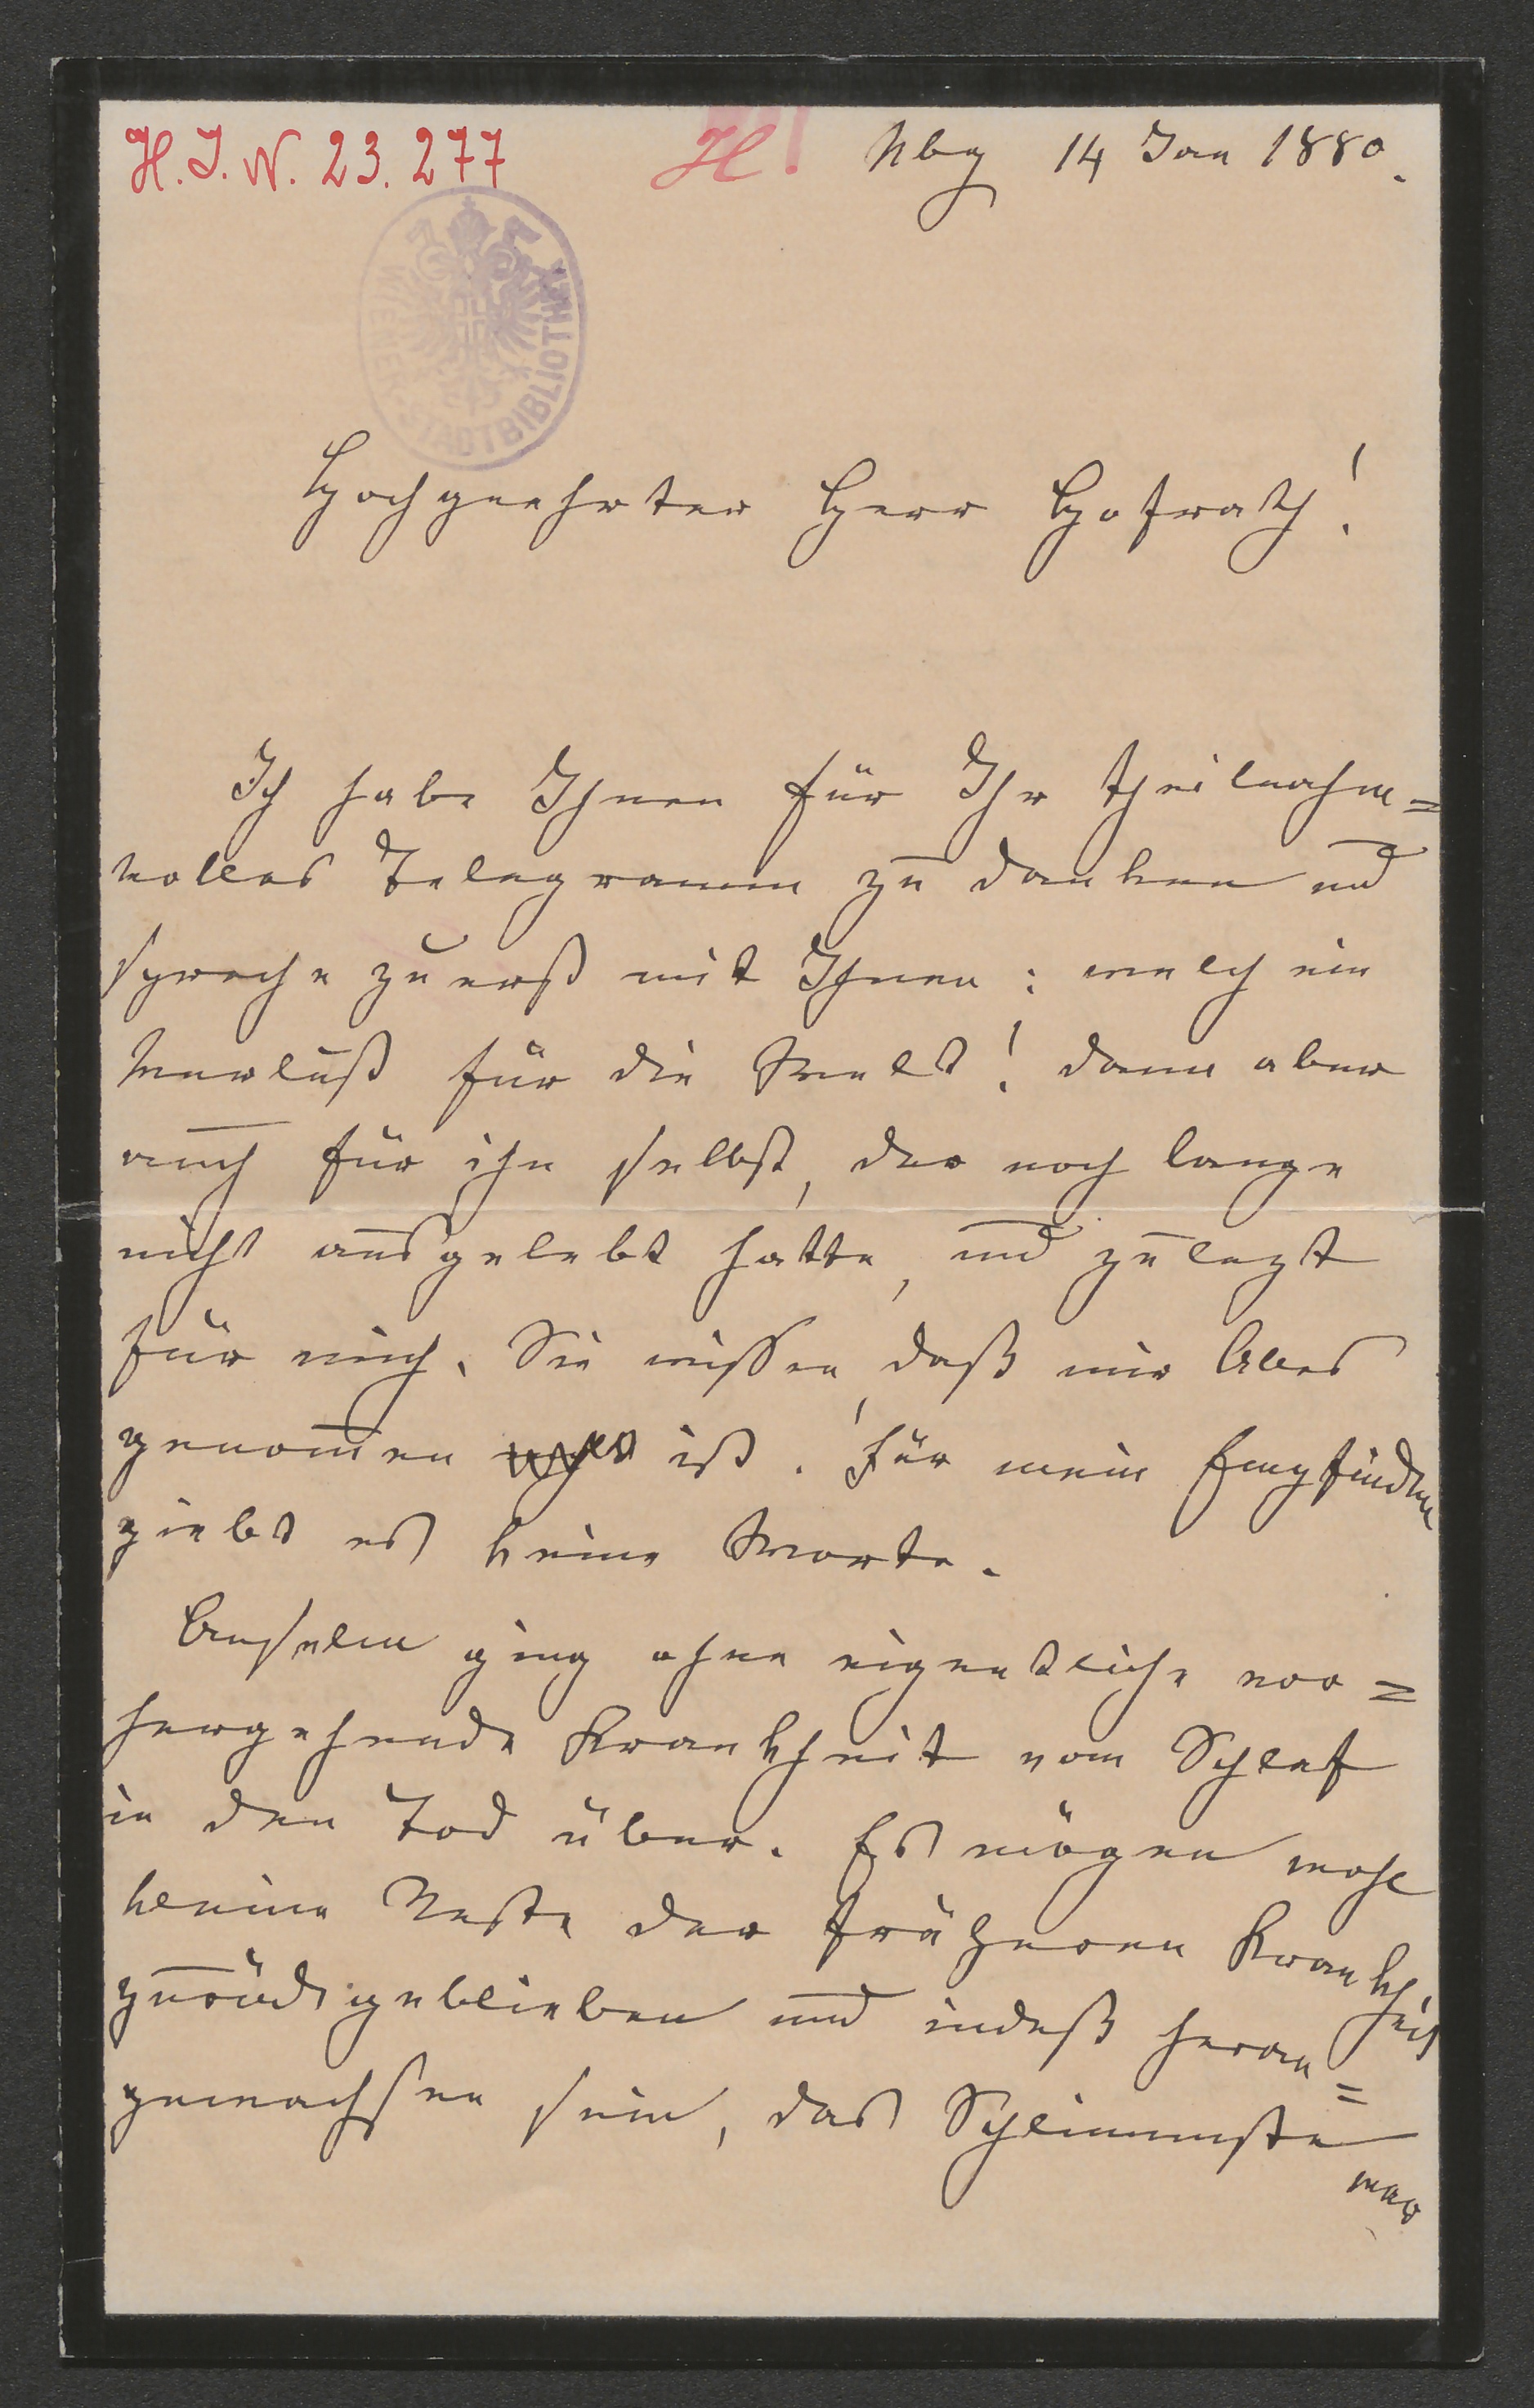 H. I. N. 23. 277
H!
Nbg 14 Jan 1880.
WIENER STADTBIBLIOTHEK
Hochgeehrter Herr Hofrath!
Ich habe Ihnen für Ihr theilnahm=
volles Telegramm zu danken und
spreche zuerst mit Ihnen: welch ein
Verlust für die Welt! dann aber
auch für ihn selbst, der noch lange
nicht ausgelebt hatte, und zulezt
für mich. Sie wissen, daß mir Alles
genomen ist. Für mein Empfinden
giebt es keine Worte.
Anselm ging ohne eigentliche vor=
hergehende Krankheit vom Schlaf
in den Tod über. Es mögen wohl
kleine Reste der früheren Krankheit
zurückgeblieben und indeß heran=
gewachsen sein, das Schlimmste
war